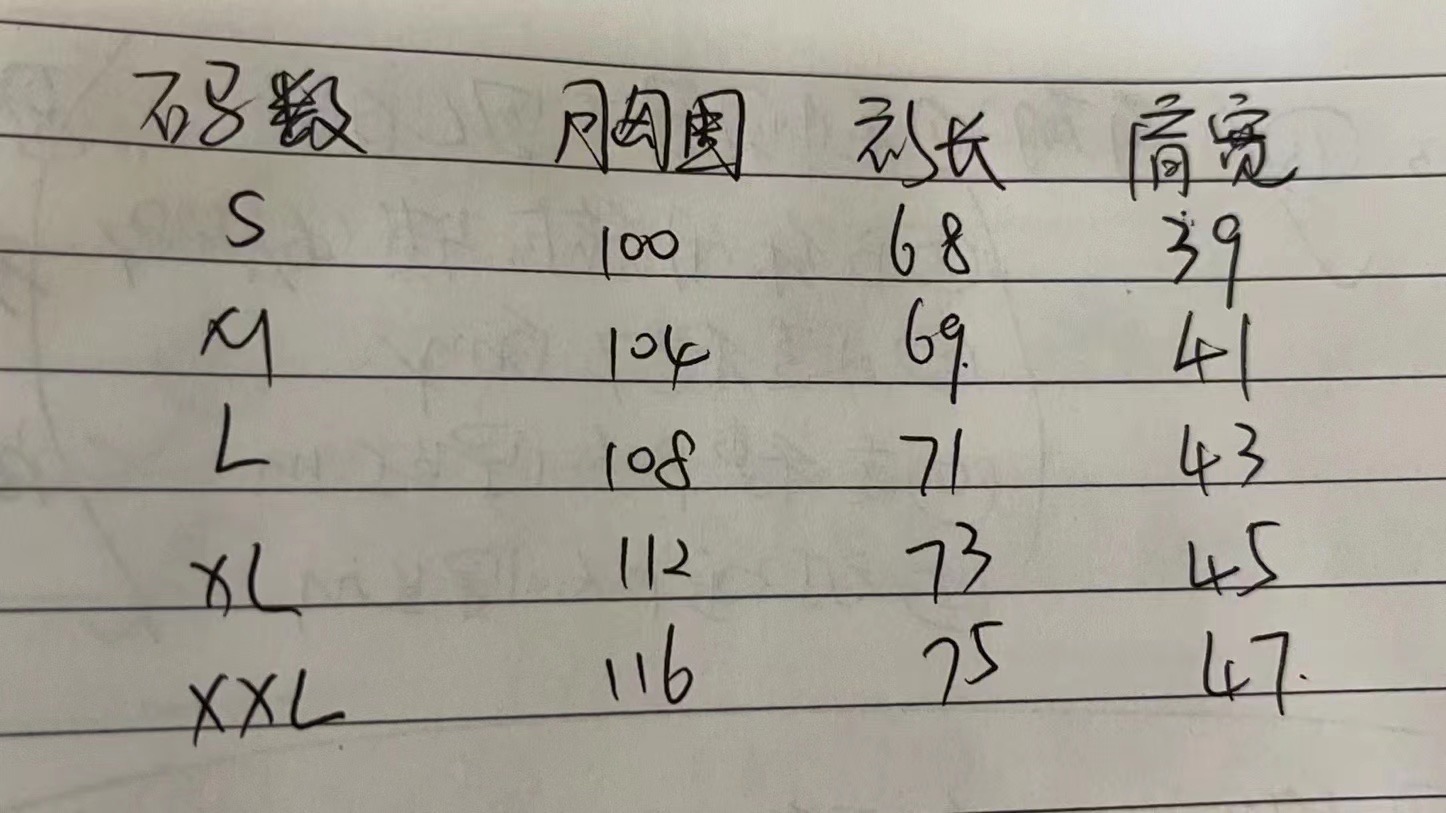 码号数 胸围 衫长 肩宽
S 100 68 39
M 104 69. 41
L 108 71 43
XL 112 73 45
XXL 116 75 47.